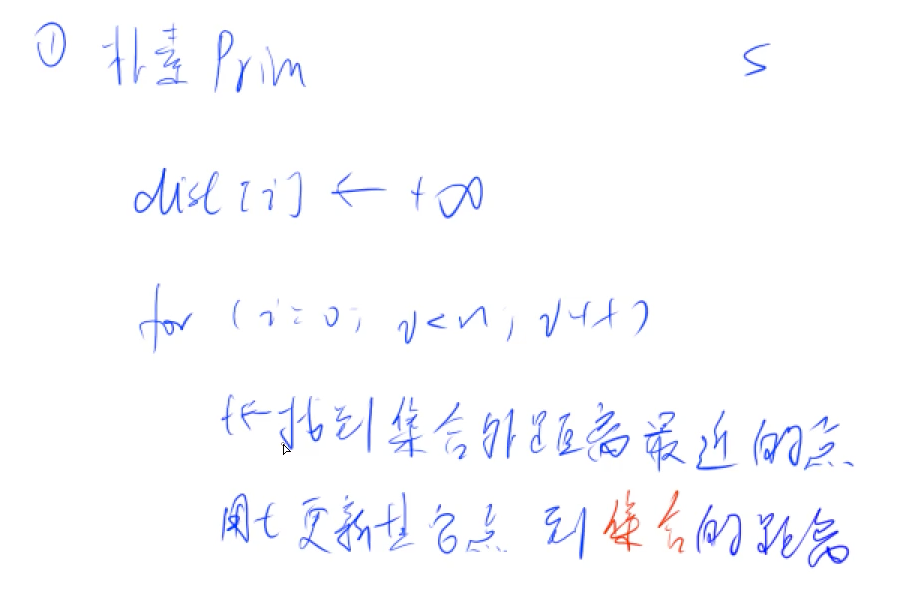 ① 朴素Prim S
dist[i] ← +∞
for (i=0; i<n; i++)
t←找到集合外距离最近的点
用t更新其它点到集合的距离